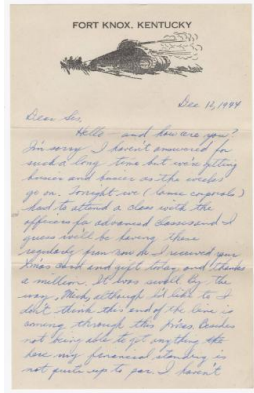 FORT KNOX, KENTUCKY
Dec 12, 1944
Dear Sis,
Hello - and how are you?
I'm sorry I haven't answered for
such a long time but we're getting
busier and busier as the weeks
go on. Tonight we (lance corporals)
had to attend a class with the
officers for advanced I
guess we'll be having these
regularly from now on. I received your
Xmas card and gift today and thanks
a million. It was swell by the
way, although I'd like to I
don't think this end of the line is
coming through this Xmas. Besides
not being able to get anything
here my financial standing is
not quite up to par. I haven't